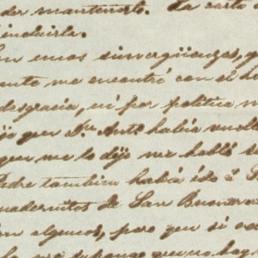 der mantenerlo. La carta
incluirla.
on unos sinvergüenzas, q
ente me encontré con el h
desgracia, ni por política n
dijo que Sr. Anto había vuelt
que me lo dijo me habló
Padre también había ido á
cuadernitos de San Buenav
en algunos, para que si oc